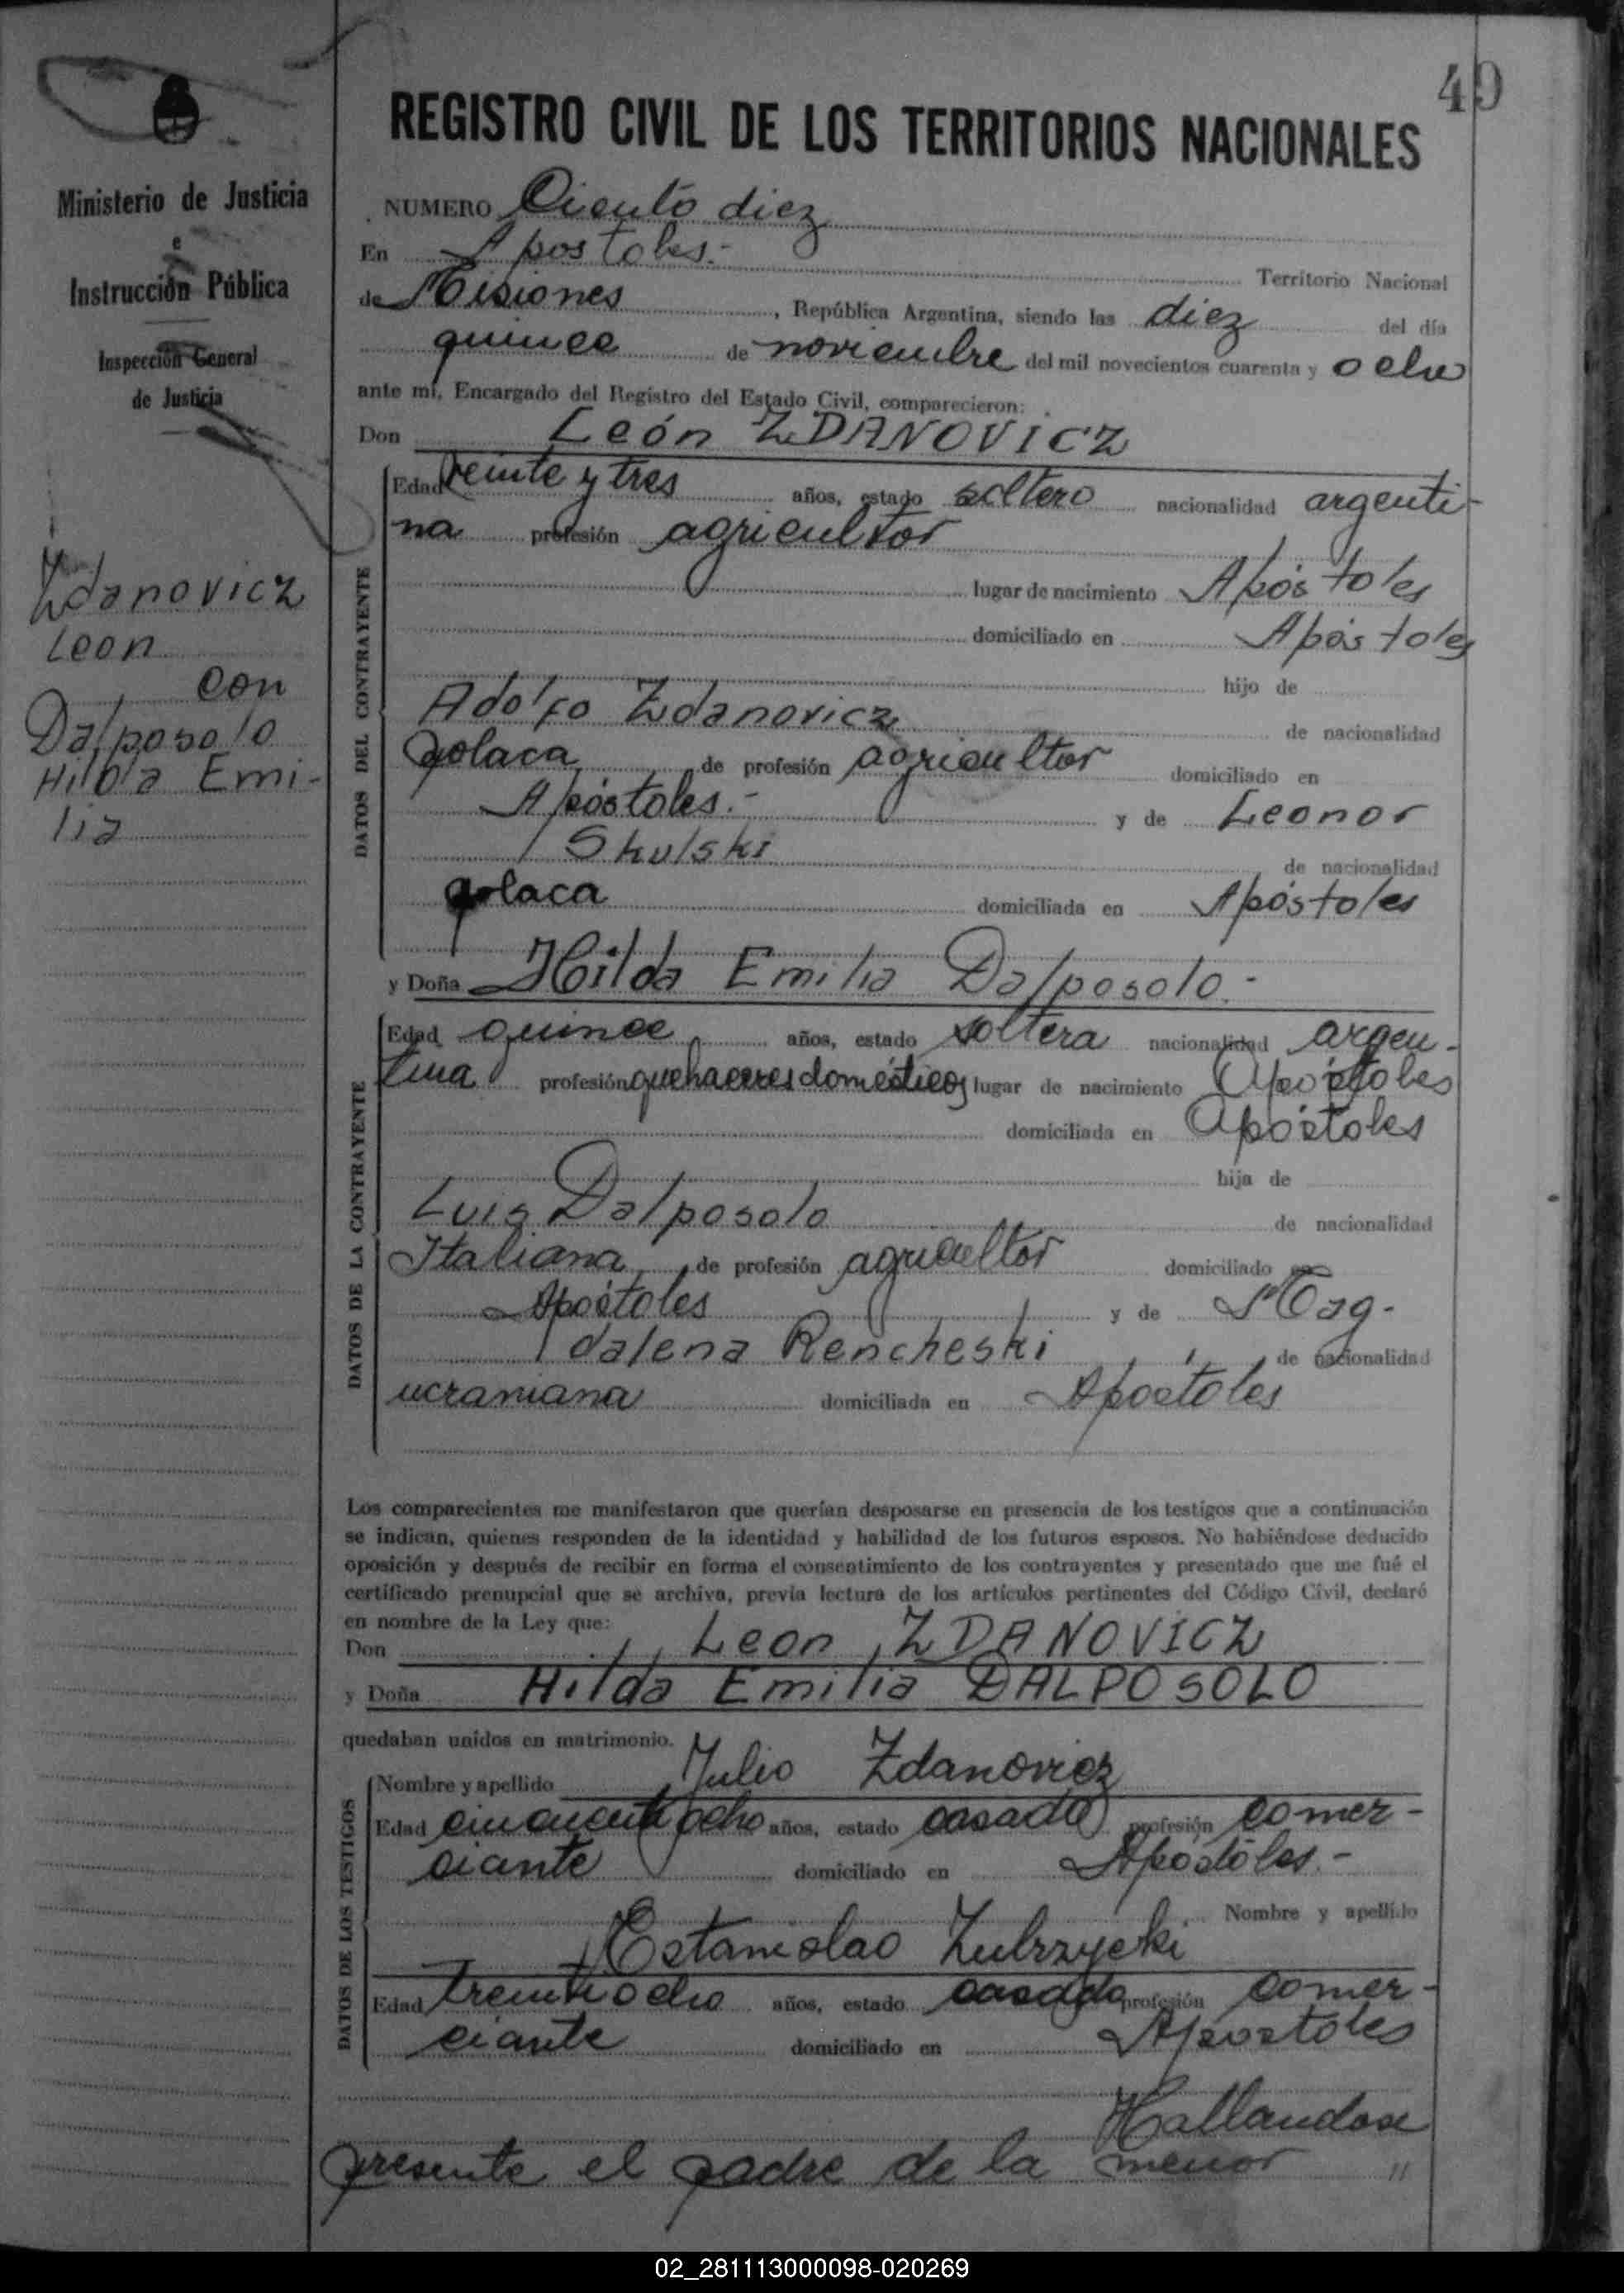 49
REGISTRO CIVIL DE LOS TERRITORIOS NACIONALES
Ministerio de Justicia
e
Instrucción Pública
Inspección General
de Justicia
Zdanovicz
Leon
con
Dalposolo
Hilda Emi-
lia
NUMERO Ciento diez
En Apostoles.- Territorio Nacional
de Misiones, República Argentina, siendo las diez del día
quince de noviembre del mil novecientos cuarenta y ocho
ante mí, Encargado del Registro del Estado Civil, comparecieron:
Don León ZDANOVICZ
DATOS DEL CONTRAYENTE
Edad veinte y tres años, estado soltero nacionalidad argenti-
na profesión agricultor
lugar de nacimiento Apóstoles
domiciliado en Apóstoles
hijo de
Adolfo Zdanovicz de nacionalidad
polaca de profesión agricultor domiciliado en
Apóstoles.- y de Leonor
Skulski de nacionalidad
polaca domiciliada en Apóstoles
y Doña Hilda Emilia Dalposolo.-
DATOS DE LA CONTRAYENTE
Edad quince años, estado soltera nacionalidad argen-
tina profesión quehaceres domésticos lugar de nacimiento Apóstoles
domiciliada en Apóstoles
hija de
Luis Dalposolo de nacionalidad
Italiana de profesión agricultor domiciliado en
Apóstoles y de Mag-
dalena Rencheski de nacionalidad
ucraniana domiciliada en Apostoles
Los comparecientes me manifestaron que querían desposarse en presencia de los testigos que a continuación
se indican, quienes responden de la identidad y habilidad de los futuros esposos. No habiéndose deducido
oposición y después de recibir en forma el consentimiento de los contrayentes y presentado que me fué el
certificado prenupcial que se archiva, previa lectura de los artículos pertinentes del Código Civil, declaré
en nombre de la Ley que:
Don Leon ZDANOVICZ
y Doña Hilda Emilia DALPOSOLO
quedaban unidos en matrimonio.
DATOS DE LOS TESTIGOS
Nombre y apellido Julio Zdanovicz
Edad cincuenta ocho años, estado casado profesión comer-
ciante domiciliado en Apóstoles.-
Nombre y apellido
Estanislao Zubrzycki
Edad treinti ocho años, estado casado profesión comer-
ciante domiciliado en Apostoles
Hallandose
presente el padre de la menor "
02_281113000098-020269